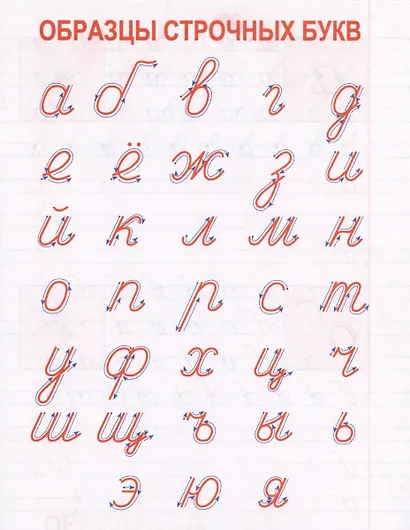 ОБРАЗЦЫ СТРОЧНЫХ БУКВ
а б в г д
е ё ж з и
й к л м н
о п р с т
у ф х ц ч
ш щ ъ ы ь
э ю я